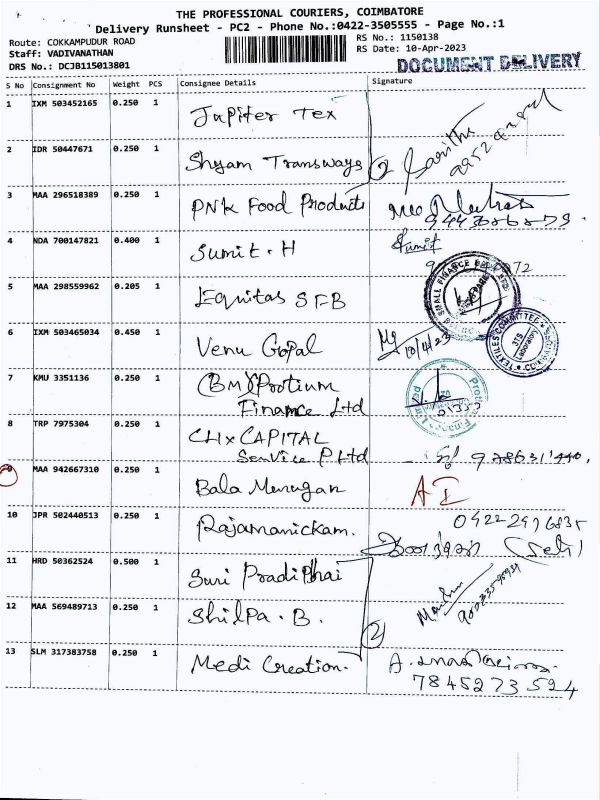 THE PROFESSIONAL COURIERS, COIMBATORE
Delivery Runsheet - PC2 - Phone No.:0422-3505555 - Page No.:1
Route: COKKAMPUDUR ROAD
RS No.: 1150138
Staff: VADIVANATHAN
RS Date: 10-Apr-2023
DRS No.: DCJB115013801
DOCUMENT DELIVERY
S No Consignment No Weight PCS Consignee Details Signature
1 IXM 503452165 0.250 1 Jupiter Tex
2 IDR 50447671 0.250 1 Shyam Transways 2
3 MAA 296518389 0.250 1 PNK Food Products
4 NDA 700147821 0.400 1 Sumit. H Sumit
5 MAA 298559962 0.205 1 Equitas SFB
SMALL FINANCE
TEXTILES COMMITTEE
Laboratory
6 IXM 503465034 0.450 1 Venu Gopal 10/4/23
7 KMU 3351136 0.250 1 (BM)(Protium
Finance Ltd
8 TRP 7975304 0.250 1 CLIX CAPITAL
Service P Ltd
9 MAA 942667310 0.250 1 Bala Murugan
10 JPR 502440513 0.250 1 Rajamanickam.
11 HRD 50362524 0.500 1 Suri Pradipbhai
12 MAA 569489713 0.250 1 Shilpa. B. 2
13 SLM 317383758 0.250 1 Medi Creation.
7845273524